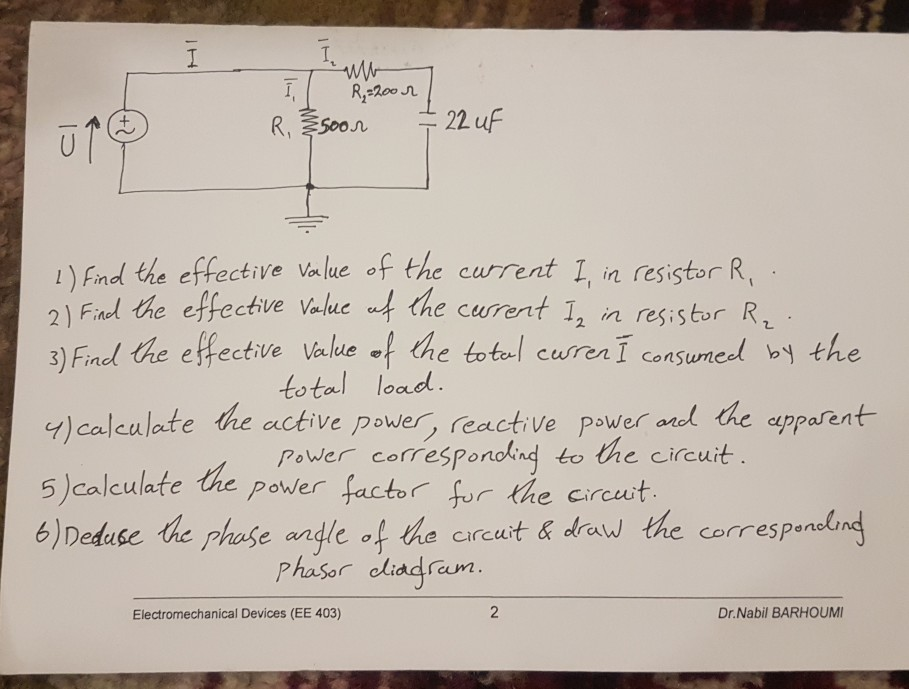 Ī Ī₂
Ī₁ R₂=200Ω
Ū + R₁ 500Ω 22 uF
1) Find the effective value of the current I₁ in resistor R₁ .
2) Find the effective value of the current I₂ in resistor R₂ .
3) Find the effective value of the total curren Ī consumed by the
total load.
4) calculate the active power, reactive power and the apparent
power corresponding to the circuit.
5) calculate the power factor for the circuit.
6) Deduse the phase angle of the circuit & draw the corresponding
phasor diagram.
Electromechanical Devices (EE 403) 2 Dr.Nabil BARHOUMI